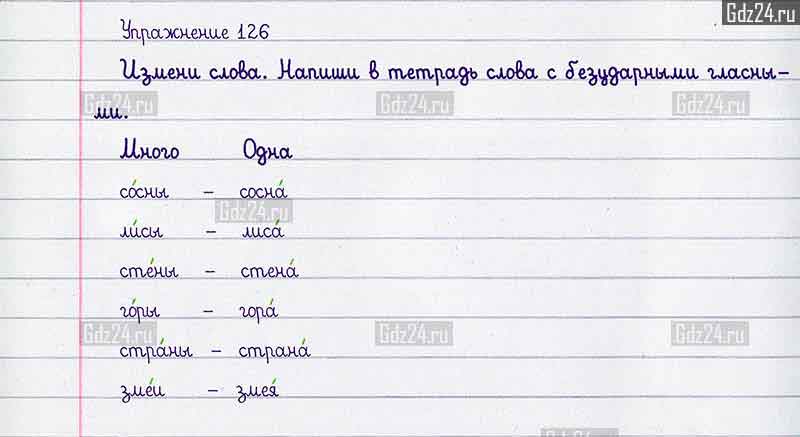 Gdz24.ru
Упражнение 126
Измени слова. Напиши в тетрадь слова с безударными гласны-
Gdz24.ru Gdz24.ru Gdz24.ru
ми.
Много Одна
со́сны – сосна́
Gdz24.ru
ли́сы – лиса́
сте́ны – стена́
го́ры – гора́
Gdz24.ru Gdz24.ru Gdz24.ru
стра́ны – страна́
зме́и – змея́
Gdz24.ru